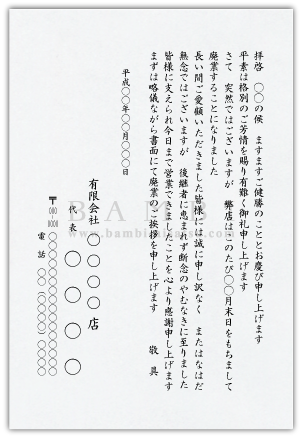 拝啓　〇〇の候　ますますご健勝のこととお慶び申し上げます
平素は格別のご芳情を賜り有難く御礼申し上げます
さて　突然ではございますが　弊店はこのたび〇〇月末日をもちまして
廃業することになりました
長い間ご愛顧いただきました皆様には誠に申し訳なく　またはなはだ
無念ではございますが　後継者に恵まれず断念のやむなきに至りました
皆様に支えられ今日まで営業できましたことを心より感謝申し上げます
まずは略儀ながら書面にて廃業のご挨拶を申し上げます
敬具
平成〇〇年〇〇月〇〇日
有限会社　〇〇〇〇　店
代表　〇〇〇〇
〒000-0000　〇〇〇〇〇〇〇〇〇〇〇〇
電話　〇〇〇〇〇〇〇〇〇〇〇〇